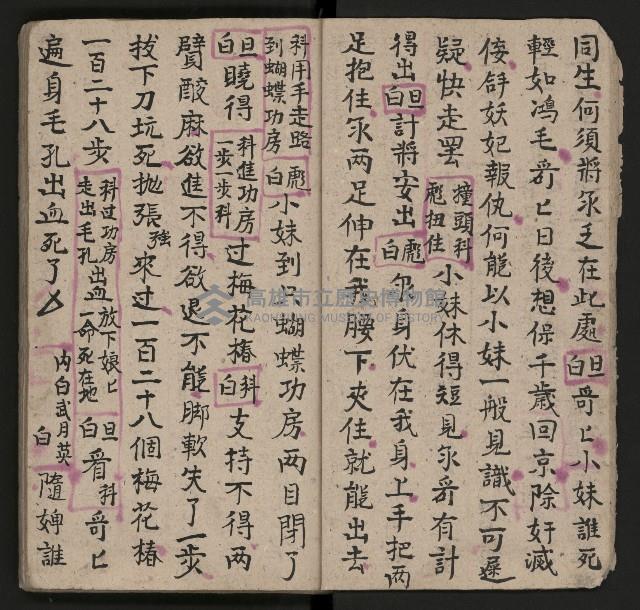 同生何須將尔乏在此處旦白哥匕小妹誰死
輕如鴻毛哥匕日後想保千歲回京除奸滅
倿舒妖妃報仇何能以小妹一般見識不可遲
疑快走罷撞頭科彪扭住小妹休得短見尔哥有計
得出旦白計將安出彪白尔身伏在我身上手把兩
足抱住尔兩足伸在我腰下夾住就能出去
科用手走路到蝴蝶功房彪白小妹到只蝴蝶功房兩目閉了
旦白曉得科進功房一步一步科过梅花樁科白支持不得兩
臂酸麻欲進不得欲退不能脚軟失了一步
拔下刀坑死抛張強來过一百二十八個梅花樁
一百二十八步科过功房放下娘匕走出毛孔出血一命死在地旦白看科哥匕
遍身毛孔出血死了内白武月英白隨婢誰
高雄市立歷史博物館
KAOHSIUNG MUSEUM OF HISTORY